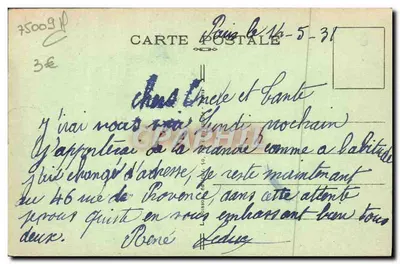 75009
3€
Paris le 14-5-31
CARTE POSTALE
chers Oncle et tante
j'irai vous voir lundi prochain
j'apporterai de la viande comme a l'abitude
j'ai changé d'adresse, je reste maintenant
au 46 rue de Provence, dans cette attente
je vous quitte en vous embrassant bien tous
deux. René Leduc